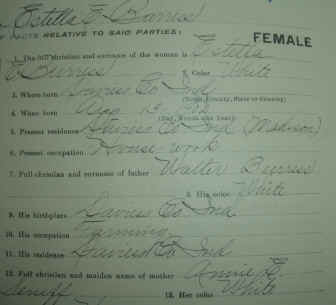 Estella E Burriss
FACTS RELATIVE TO SAID PARTIES: FEMALE
1. The full christian and surname of the woman is Estella
Burriss 2. Color White
3. Where born Daviess Co Ind
(Town, County, State or Country)
4. When born Aug 13
(Day, Month and Year)
5. Present residence Daviess Co Ind (Madison)
6. Present occupation House work
7. Full christian and surname of father Walter Burriss
8. His color White
9. His birthplace Daviess Co. Ind
10. His occupation Farming
11. His residence Daviess Co Ind
12. Full christian and maiden name of mother Annie E.
13. Her color White